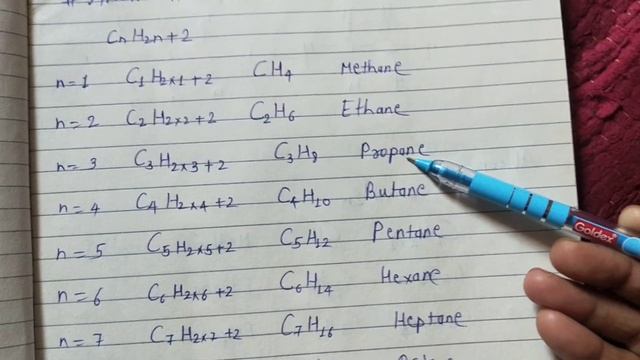 CnH2n+2
n=1 C1H2×1+2 CH4 Methane
n=2 C2H2×2+2 C2H6 Ethane
n=3 C3H2×3+2 C3H8 Propane
n=4 C4H2×4+2 C4H10 Butane
n=5 C5H2×5+2 C5H12 Pentane
n=6 C6H2×6+2 C6H14 Hexane
n=7 C7H2×7+2 C7H16 Heptane
Goldex